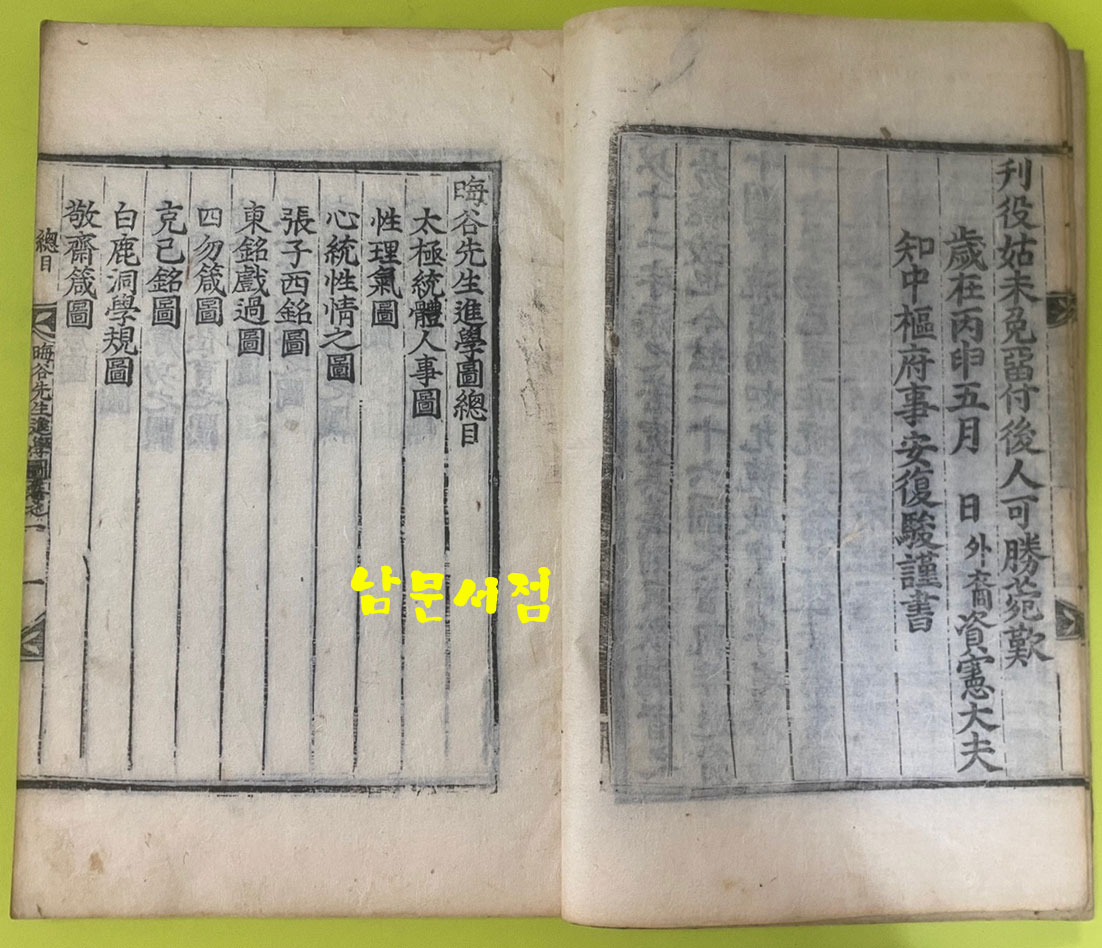 刊役姑未免留付後人可勝菀歎
歲在丙申五月 日外裔資憲大夫
知中樞府事安復駿謹書
晦谷先生進學圖總目
太極統體人事圖
性理氣圖
心統性情之圖
張子西銘圖
東銘戲過圖
四勿箴圖
克己銘圖
白鹿洞學規圖
敬齋箴圖
總目
晦谷先生進學圖卷之一
一
남문서점